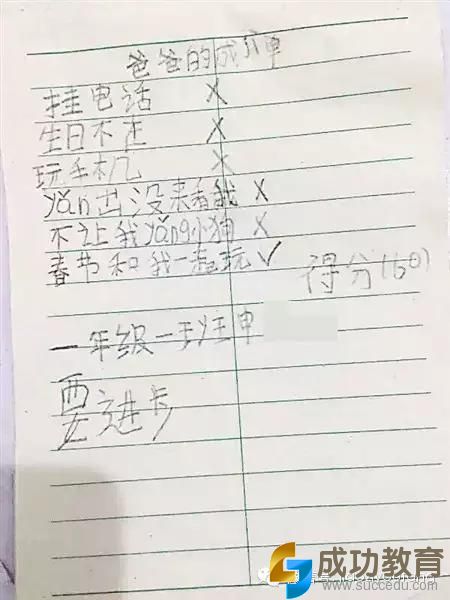 爸爸的成八单
挂电话 X
生日不在 X
玩手机 X
yǎn出没来看我 X
不让我yǎng小狗 X
春节和我一起玩 ✓
得分(60)
一年级一班汪申
要进步
成功教育
www.succedu.com